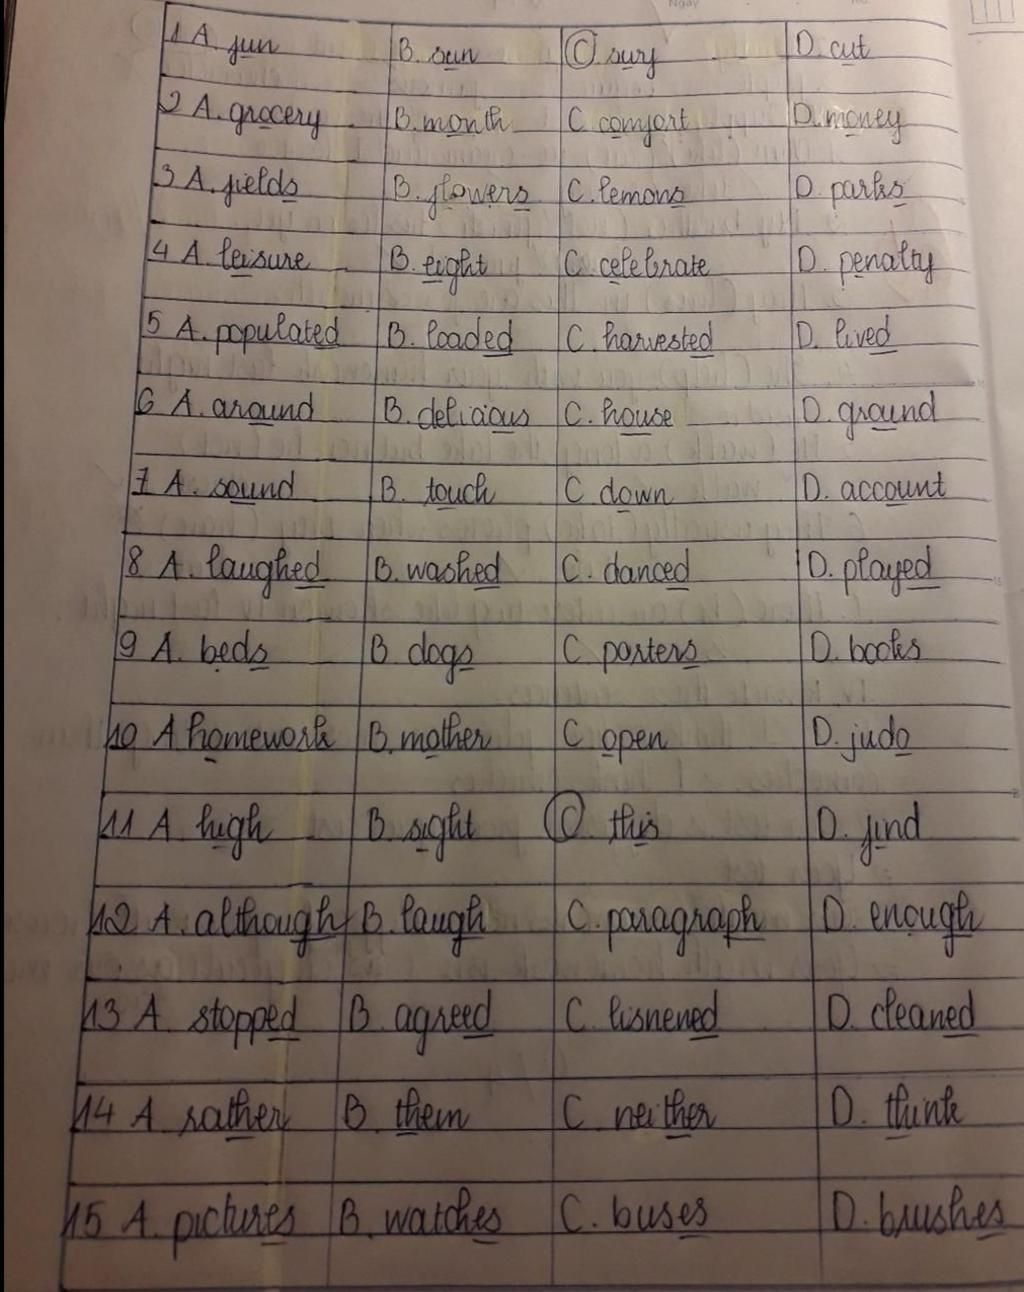 Ngày
1 A. fun B. sun C. surf D. cut
2 A. grocery B. month C. comfort D. money
3 A. fields B. flowers C. lemons D. parks
4 A. leisure B. eight C. celebrate D. penalty
5 A. populated B. loaded C. harvested D. lived
6 A. around B. delicious C. house D. ground
7 A. sound B. touch C down D. account
8 A. laughed B. washed C. danced D. played
9 A. beds B dogs C porters D. books
10 A homework B. mother C open D. judo
11 A high B sight C. this D. find
12 A. although B. laugh C. paragraph D. enough
13 A. stopped B agreed C. lisnened D. cleaned
14 A. rather B them C neither D. think
15 A. pictures B. watches C. buses D. brushes